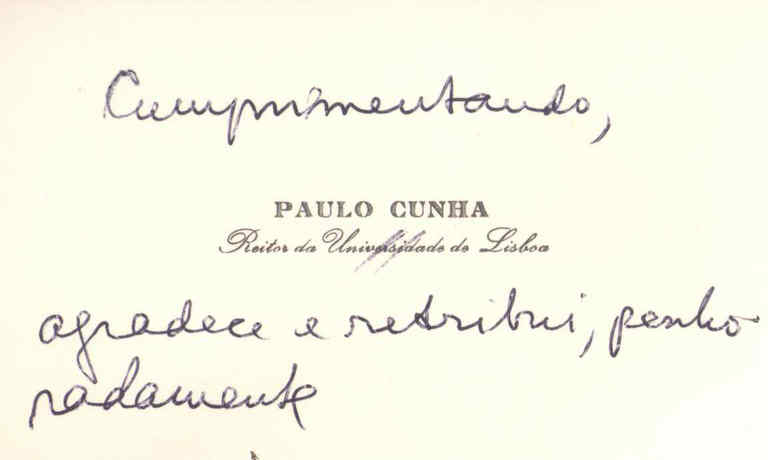 Cumprimentando,
PAULO CUNHA
Reitor da Universidade de Lisboa
agradece e retribui, penho
radamente